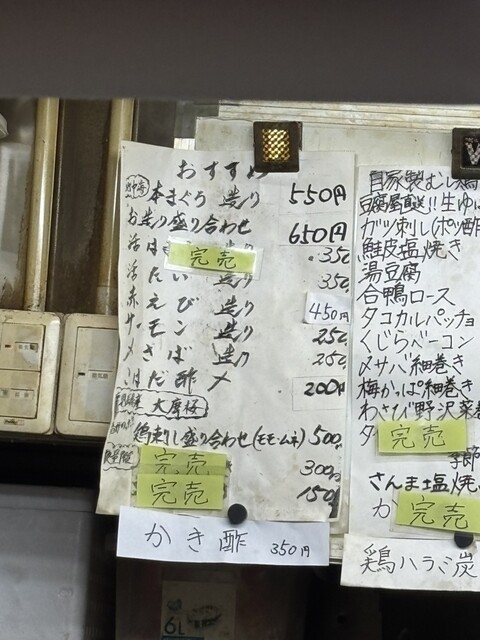 おすすめ
本まぐろ 造り 550円
お造り盛り合わせ 650円
活は 完売 造り 350
活たい 造り 350
赤えび 造り 450円
サーモン 造り 250
〆さば 造り 250
こはだ酢〆 200円
大摩桜
鶏刺し盛り合わせ(モモ・ムネ) 500
完売 300
完売 150
かき酢 350円
自家製むし鶏
豆腐屋直送!!生ゆ
ガツ刺し(ポン酢
鮭皮塩焼き
湯豆腐
合鴨ロース
タコカルパッチョ
くじらベーコン
〆サバ細巻き
梅かっぱ細巻き
わさび野沢菜巻
タ 完売
さんま塩焼
カ 完売
鶏ハラミ炭
6L